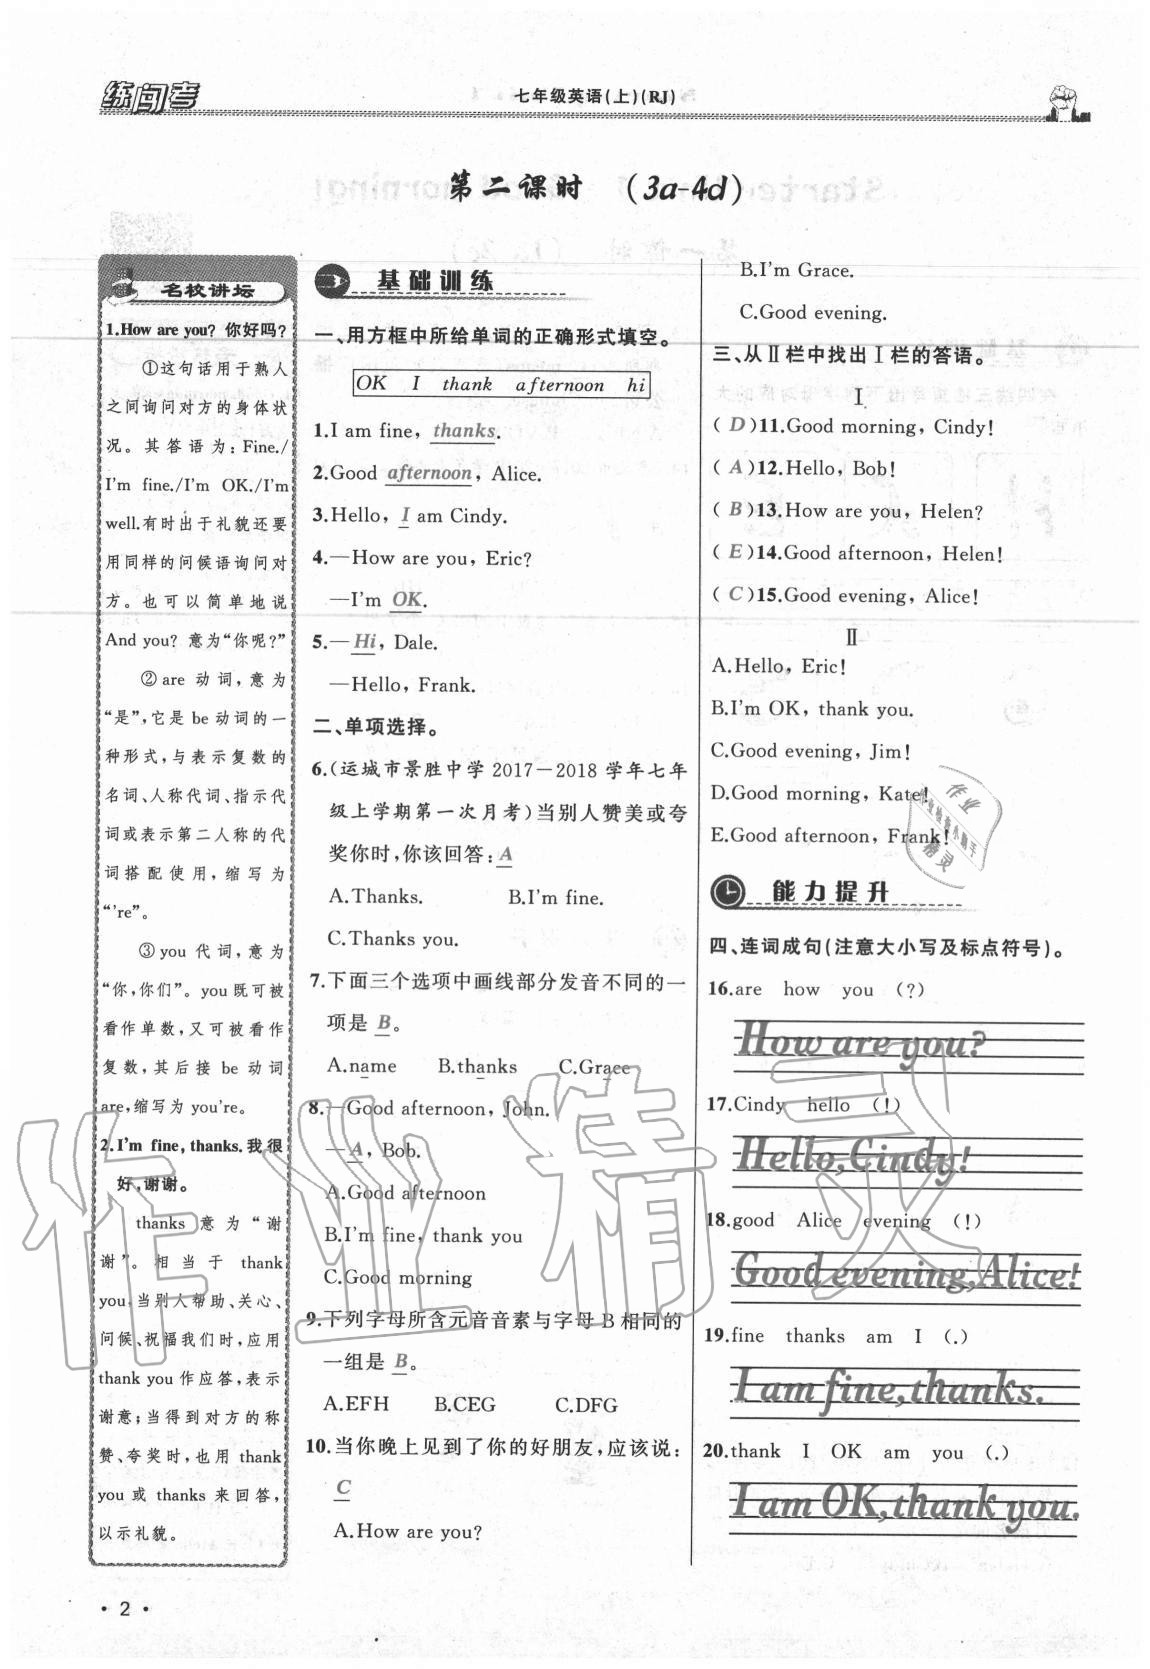 练闯考
七年级英语(上)(RJ)
第二课时 (3a-4d)
名校讲坛
1.How are you? 你好吗?
①这句话用于熟人
之间询问对方的身体状
况。其答语为:Fine./
I'm fine./I'm OK./I'm
well.有时出于礼貌还要
用同样的问候语询问对
方。也可以简单地说
And you? 意为“你呢?”
②are 动词,意为
“是”,它是 be 动词的一
种形式,与表示复数的
名词、人称代词、指示代
词或表示第二人称的代
词搭配使用,缩写为
“'re”。
③you 代词,意为
“你,你们”。you 既可被
看作单数,又可被看作
复数,其后接 be 动词
are,缩写为 you're.
2.I'm fine, thanks.我很
好,谢谢。
thanks 意为“谢
谢”。相当于 thank
you,当别人帮助、关心、
问候、祝福我们时,应用
thank you 作应答,表示
谢意;当得到对方的称
赞、夸奖时,也用 thank
you 或 thanks 来回答,
以示礼貌。
基础训练
一、用方框中所给单词的正确形式填空。
OK I thank afternoon hi
1.I am fine, thanks.
2.Good afternoon, Alice.
3.Hello, I am Cindy.
4.—How are you, Eric?
—I'm OK.
5.—Hi, Dale.
—Hello, Frank.
二、单项选择。
6.(运城市景胜中学 2017-2018 学年七年
级上学期第一次月考)当别人赞美或夸
奖你时,你该回答: A
A.Thanks. B.I'm fine.
C.Thanks you.
7.下面三个选项中画线部分发音不同的一
项是 B。
A.name B.thanks C.Grace
8.—Good afternoon, John.
—A, Bob.
A.Good afternoon
B.I'm fine, thank you
C.Good morning
9.下列字母所含元音音素与字母 B 相同的
一组是 B。
A.EFH B.CEG C.DFG
10.当你晚上见到了你的好朋友,应该说:
C
A.How are you?
B.I'm Grace.
C.Good evening.
三、从Ⅱ栏中找出Ⅰ栏的答语。
Ⅰ
( D )11.Good morning, Cindy!
( A )12.Hello, Bob!
( B )13.How are you, Helen?
( E )14.Good afternoon, Helen!
( C )15.Good evening, Alice!
Ⅱ
A.Hello, Eric!
B.I'm OK, thank you.
C.Good evening, Jim!
D.Good morning, Kate!
E.Good afternoon, Frank!
能力提升
四、连词成句(注意大小写及标点符号)。
16.are how you (?)
How are you?
17.Cindy hello (!)
Hello, Cindy!
18.good Alice evening (!)
Good evening, Alice!
19.fine thanks am I (.)
I am fine, thanks.
20.thank I OK am you (.)
I am OK, thank you.
· 2 ·
作业精灵